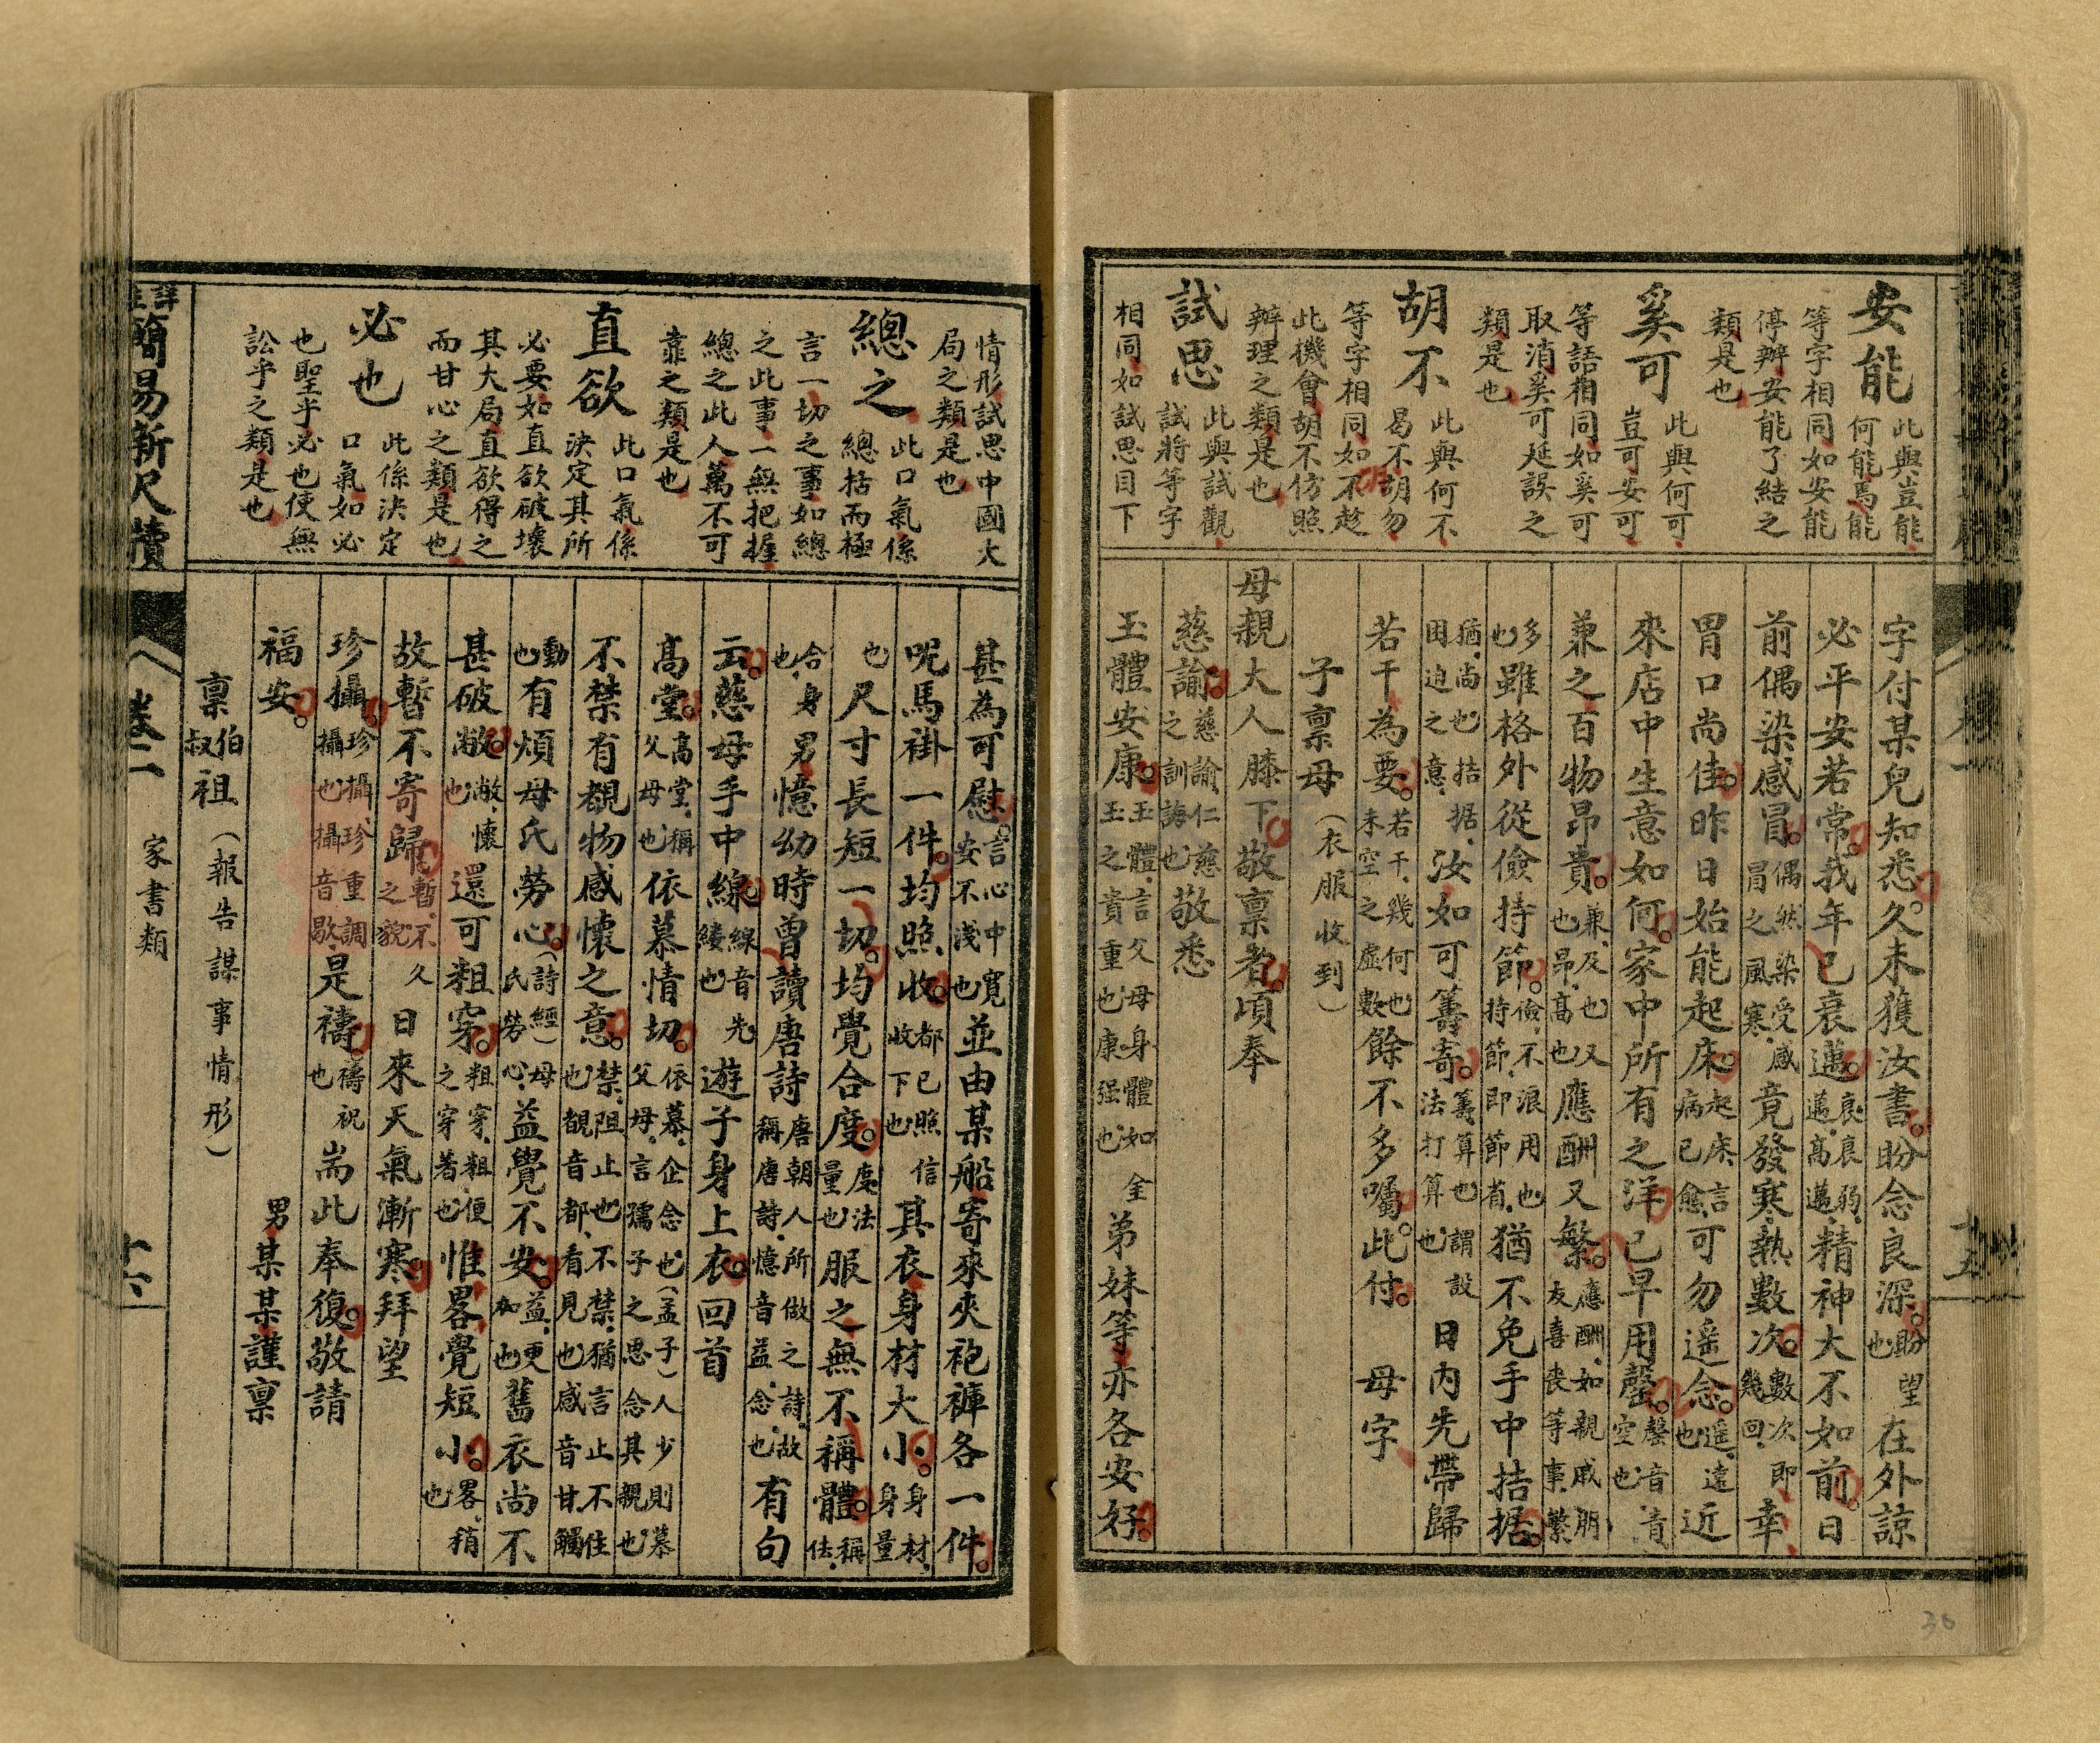 安能 此與豈能何能焉能
等字相同如安能
停辦安能了結之
類是也
奚可 此與何可豈可安可
等語相同如奚可
取消奚可延誤之
類是也
胡不 此與何不曷不胡勿
等字相同如不趁
此機會胡不仿照
辦理之類是也
試思 此與試觀試將等字
相同如試思目下
字付某兒知悉。久未獲汝書。盼念良深。盼望也在外諒
必平安若常。我年已衰邁。衰衰弱、邁高邁、精神大不如前。日
前偶染感冒。偶然染受感冒之風寒、竟發寒熱數次。數次即幾回、幸
胃口尚佳。昨日始能起床。起床、言病已愈、可勿遙念。遙、遠也近
來店中生意如何。家中所有之洋。已早用罄。罄音青空也
兼之百物昂貴。兼、及也又昂、高也應酬又繁。應酬、如親戚朋友喜喪等事、繁
多也雖格外從儉持節。儉、不浪用也持節、即節省、猶不免手中拮据。
猶、尚也拮据、困迫之意、汝如可籌寄。籌、算也謂設法打算也日內先帶歸
若干為要。若干、幾何也未空之虛數餘不多囑。此付。母字
子稟母（衣服收到）
母親大人膝下。敬稟者。頃奉
慈諭。慈諭、仁慈之訓誨也敬悉
玉體安康。玉體、言父母身體如玉之貴重也康强也、全弟妹等亦各安好。
情形試思中國大
局之類是也
總之 此口氣係總括而極
言一切之事如總
之此事一無把握
總之此人萬不可
靠之類是也
直欲 此口氣係決定其所
必要如直欲破壞
其大局直欲得之
而甘心之類是也
必也 此係決定口氣如必
也聖乎必也使無
訟乎之類是也
甚為可慰。言心中寬安不淺也並由某船寄來夾袍褲各一件。
呢馬褂一件。均照收。都已照信收下也其衣身材大小。身材、身量
也尺寸長短一切。均覺合度。度、法量也服之無不稱體。稱佉、
合身也、男憶幼時曾讀唐詩唐朝人所做之詩、故稱唐詩、憶音益、念也、有句
云。慈母手中線線音先縷也遊子身上衣。回首
高堂。高堂、稱父母也依慕情切。依慕、企念也（孟子）人少則慕父母、言孺子之思念其親也
不禁有覩物感懷之意。禁、阻止也不禁、猶言止不住也、覩音都、看見也感音甘觸
動也有煩母氏勞心。（詩經）母氏勞心、益覺不安。益、更加也舊衣尚不
甚破敝。敝、懷也還可粗穿。粗穿、粗便之穿着也惟畧覺短小。畧、稍也
故暫不寄歸。暫、不久之貌、日來天氣漸寒。拜望
珍攝。珍攝、珍重調攝也攝音歇、是禱。禱祝也耑此奉復。敬請
福安。男某某謹稟
稟伯叔祖（報告謀事情形）
簡易新尺牘
卷二
家書類
十六
十五
36